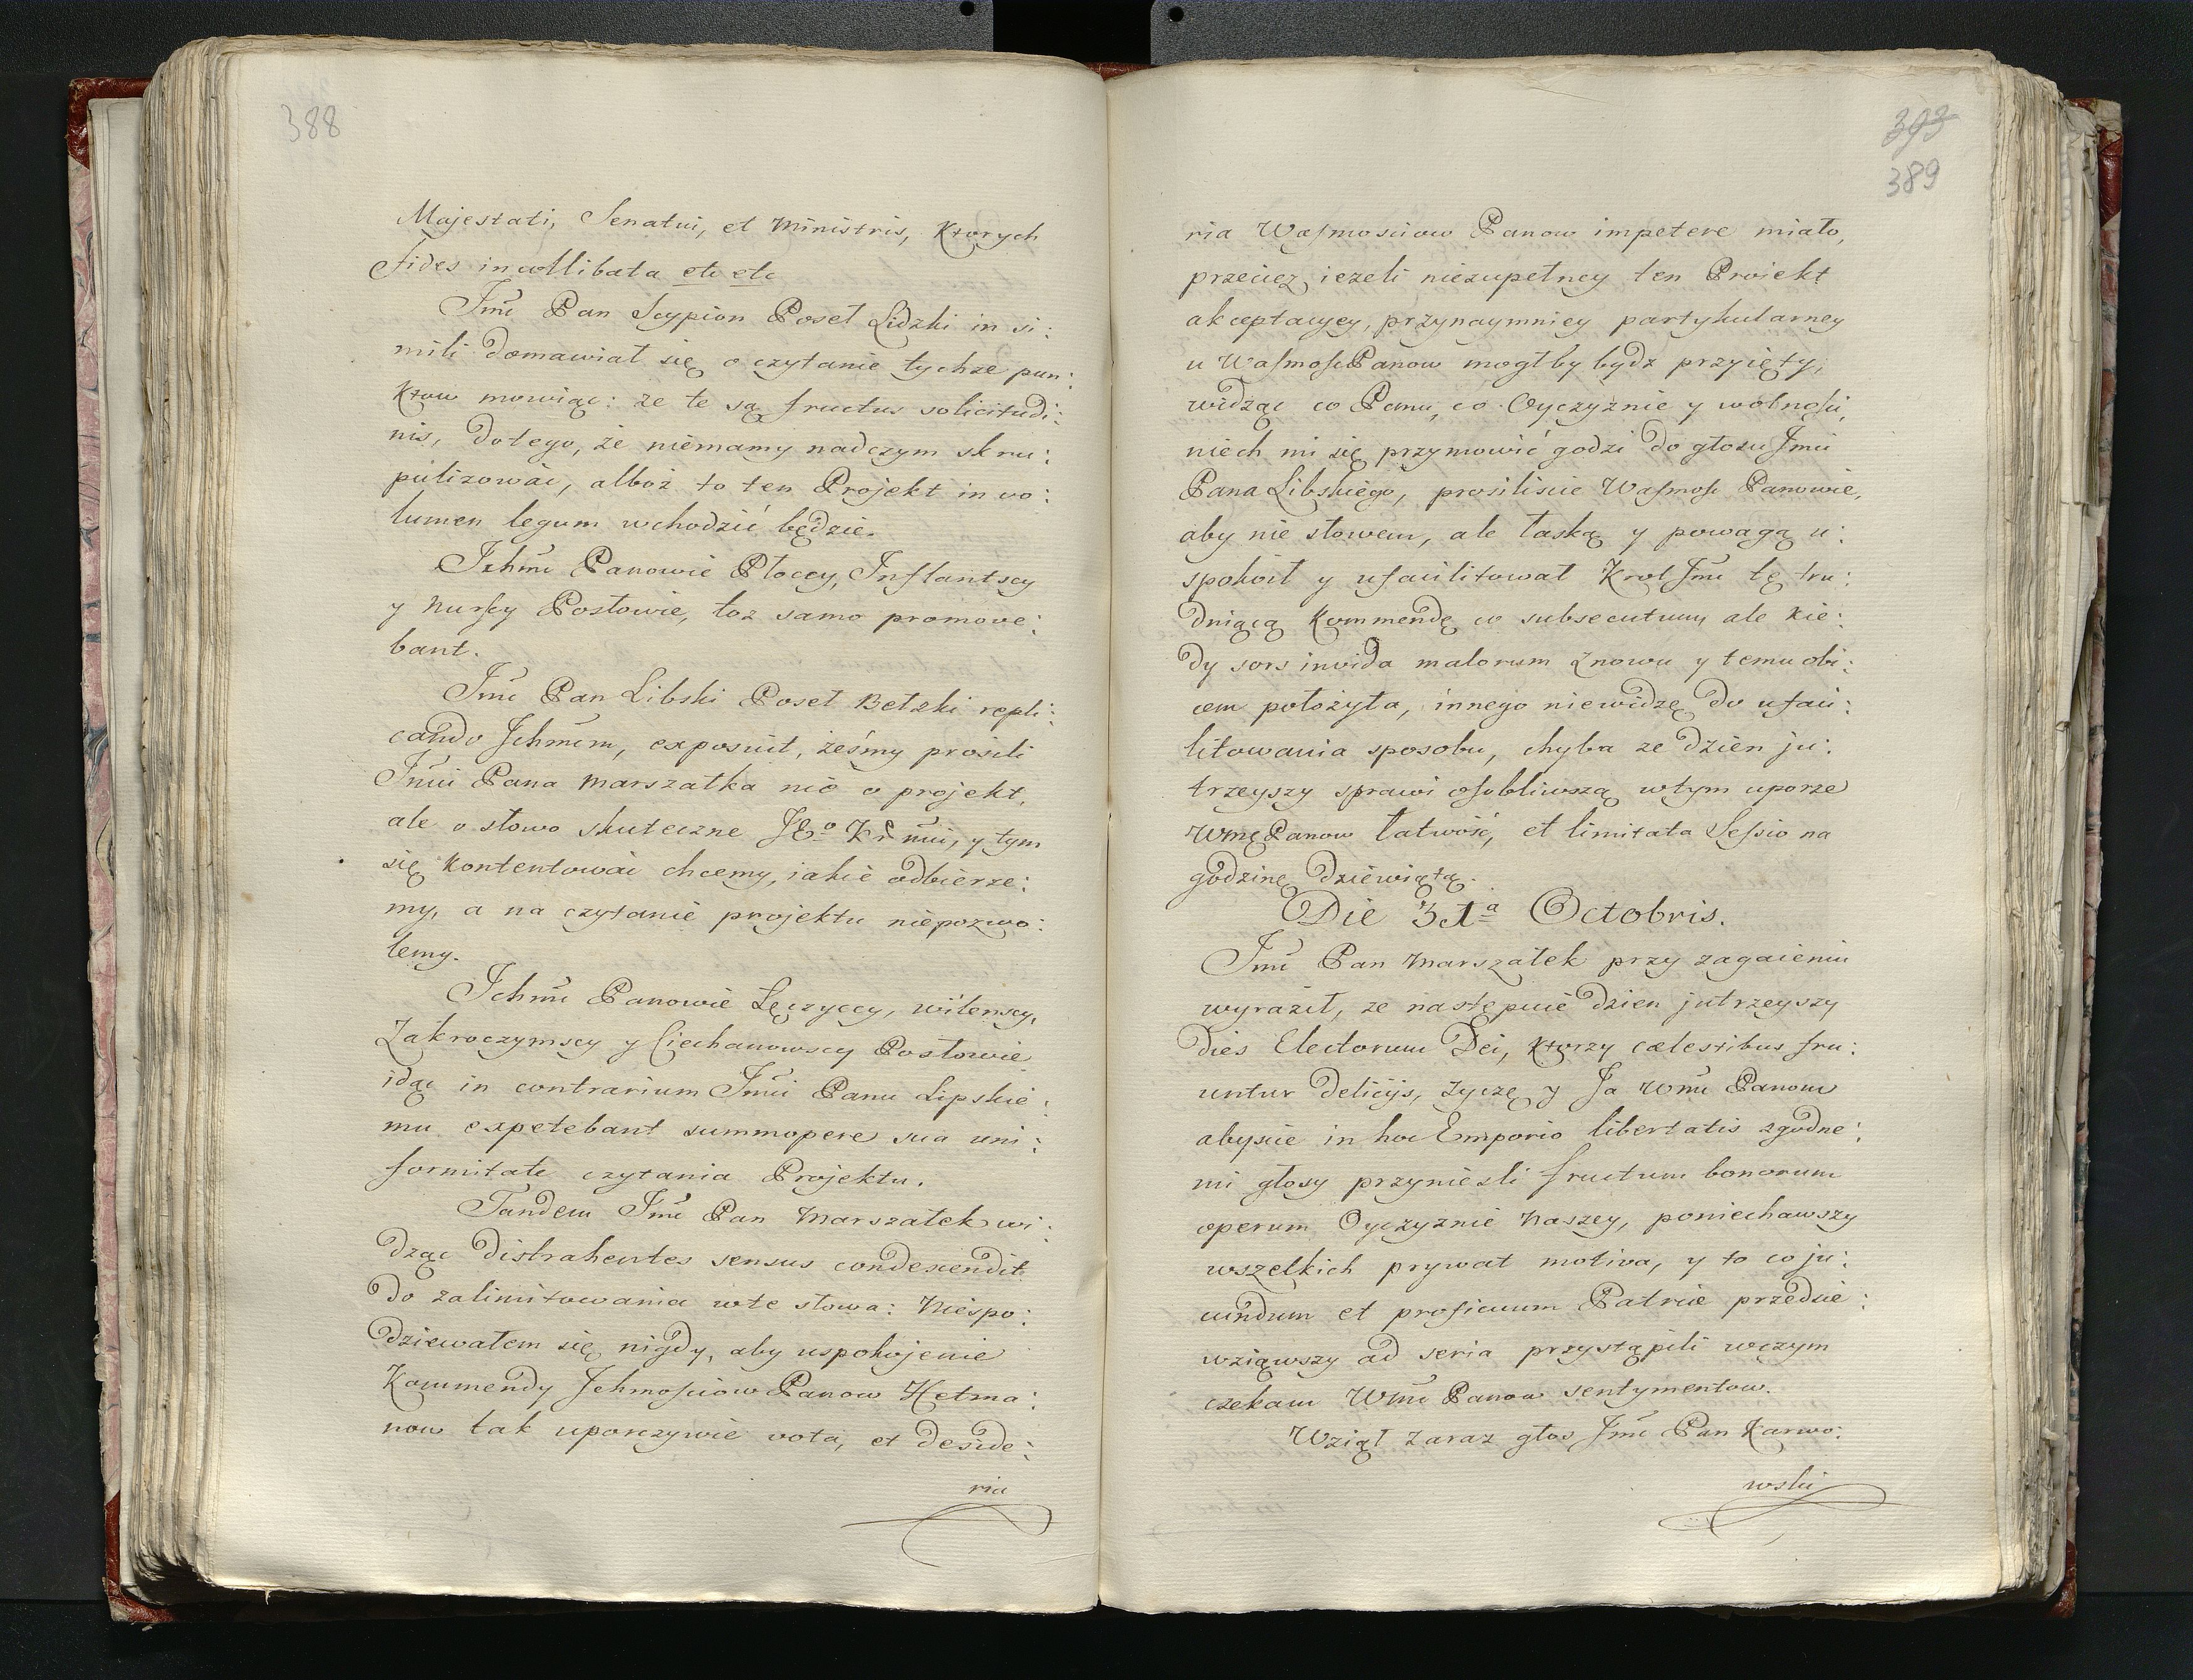 388
Majestati, Senatui, et Ministris, Ktorych
fides incollibata etc etc
Jmć Pan Scypion Poseł Lidzki in si:
mili domawiał się o czytanie tychże pun:
któw mowiąc: że te są fructus solicitudi:
nis, dotego, że niemamy nadczym skru:
pulizować, alboż to ten Projekt in vo:
lumen legum wchodzić będzie.
Jchmć Panowie Płoccy, Inflantscy
y Nurscy Posłowie, toż samo promove:
bant.
Jmć Pan Libski Poseł Bełzki repli:
cando Jchmćm, exposuit, żeśmy prosili
Jmći Pana Marszałka nie o projekt,
ale o słowo skuteczne JEo Kr mći, y tym
się kontentować chcemy, iakie odbierze:
my, a na czytanie projektu niepozwo:
lemy.
Jchmć Panowie Łęczyccy, Wilenscy,
Zakroczymscy y Ciechanowscy Posłowie
idąc in contrarium Jmći Panu Lipskie:
mu expetebant summopere sua uni:
formitate czytania Projektu.
Tandem Jmć Pan Marszałek wi:
dząc distrahentes sensus condescendit
do zalimitowania wte słowa: Niespo:
dziewałem się nigdy, aby uspokojenie
Kommendy Jchmościow Panow Hetma:
now tak uporczywie vota, et deside:
ria
393
389
ria Waſmosciow Panow impetere miało,
przecież, ieżeli niezupełney ten Proiekt
akceptacyey, przynaymniey partykularney
u WaſmoſcPanow mogłby bydź przyięty,
widząc co Panu, co Oyczyznie y wolnoſci,
niech mi się przymowić godzi do głosu Jmći
Pana Libskiego, prosiliscie Waſmośc Panowie,
aby nie słowem, ale łaską y powagą u:
spokoił y ufacilitował Krol Jmć tę tru:
dniącą Kommendę co subsecutum, ale kie:
dy sors invida malorum znowu y temu obi:
cem położyła, innego niewidzę do ufaci:
litowania sposobu, chyba ze dzien ju:
trzeyszy sprawi osobliwszą wtym uporze
WmęPanow łatwość, et limitata Seſsio na
godzinę dziewiątą.
Die 31a Octobris.
Jmć Pan Marszałek przy zagaieniu
wyraził, ze następuie dzien jutrzeyszy
dies Electorum Dei, ktorzy cælestibus fru:
untur delicijs, życzę y Ja Wmć Panow
abyscie in hoc Emporio libertatis zgodne:
mi głosy przyniesli fructum bonorum
operum Oyczyznie Naszey, poniechawszy
wszelkich prywat motiva, y to co ju:
cundum et proficuum Patriæ przedsie:
wziąwszy ad seria przystąpili wczym
czekam Wmć Panow sentymentow.
Wziął zaraz głos Jmć Pan Karwo:
wski